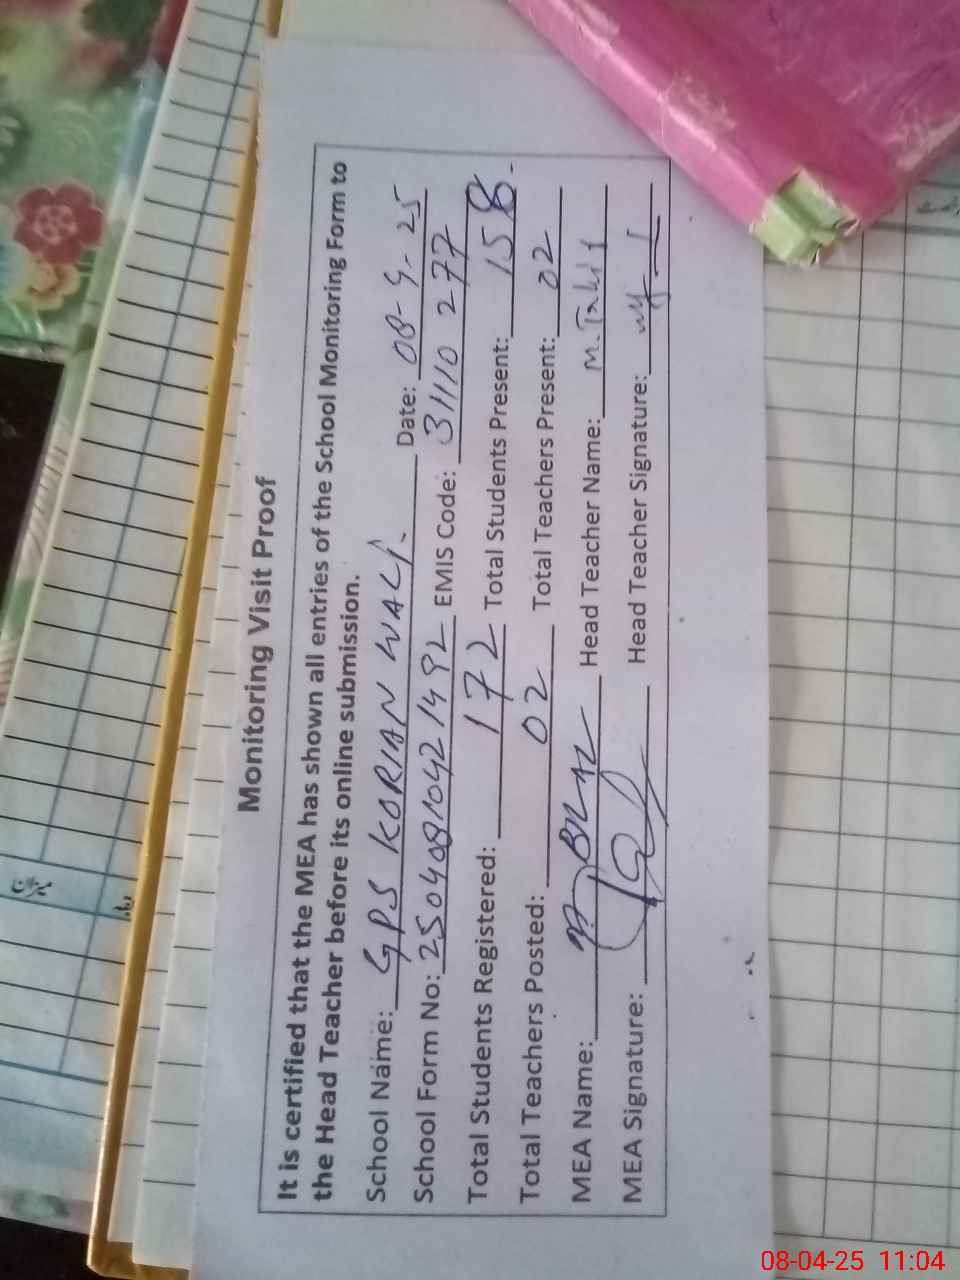 Monitoring Visit Proof
It is certified that the MEA has shown all entries of the School Monitoring Form to
the Head Teacher before its online submission.
School Name: GPS KORIAN WALI. Date: 08-4-25
School Form No: 25040810421492 EMIS Code: 31110277
Total Students Registered: 172 Total Students Present: 158
Total Teachers Posted: 02 Total Teachers Present: 02
MEA Name: Head Teacher Name: M. Tahir
MEA Signature: Head Teacher Signature:
میزان
08-04-25 11:04